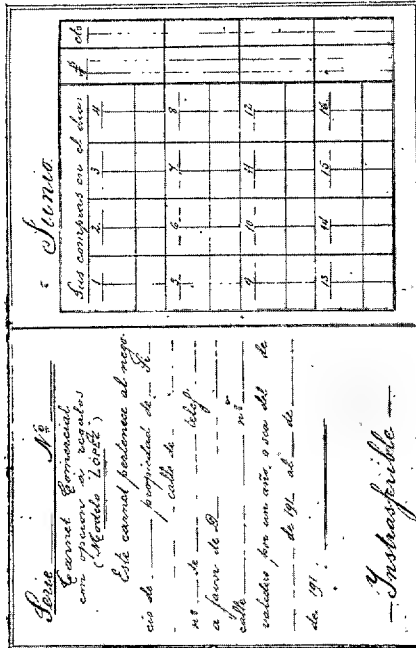 Serie Nº
Carnet Comercial
con opcion á regalos
(Modelo "LÓPEZ")
Este carnet pertenece al nego-
cio de propiedad de
calle de
nº de teléf.
a favor de D
calle nº
valedero por un año, o sea del de
de 191 al de
de 191
Instrasferible
Junio
Sus compras en el día: $ cts
1 2 3 4
5 6 7 8
9 10 11 12
13 14 15 16